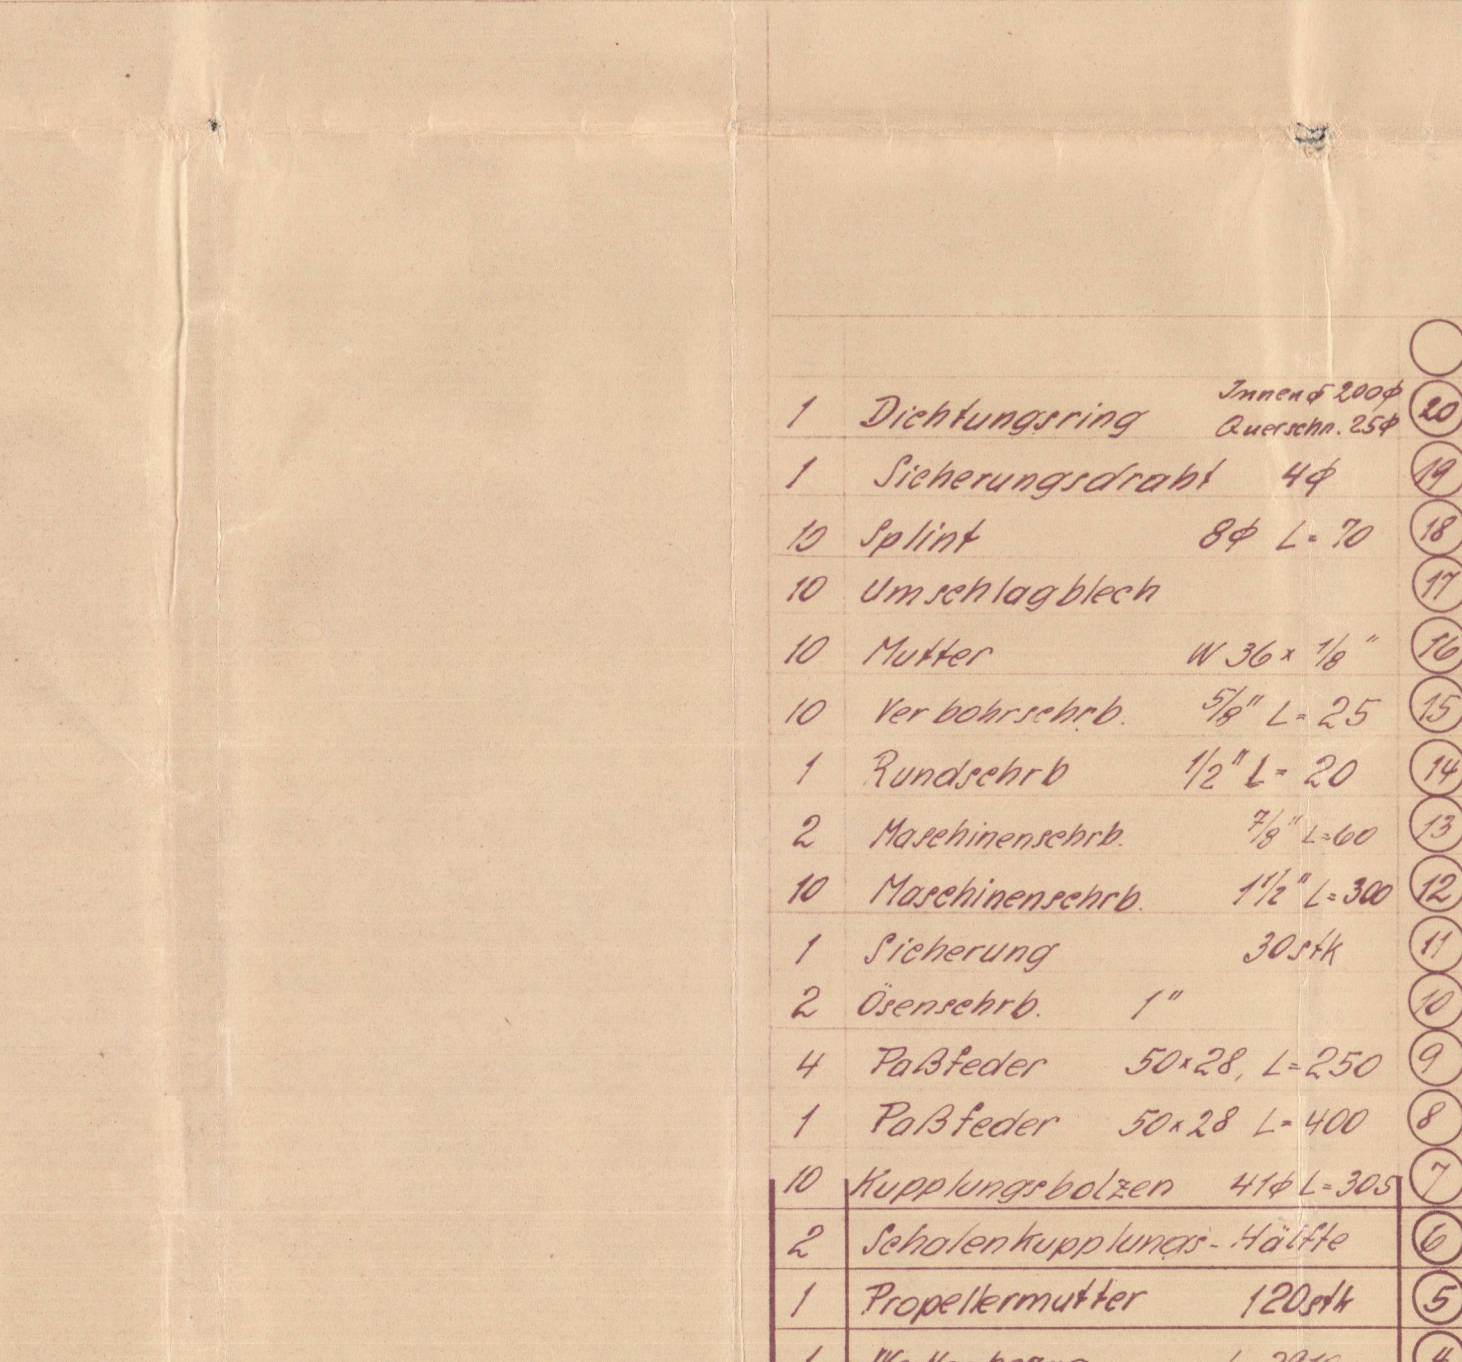 1 Dichtungsring Innenϕ 200ϕ Querschn. 25ϕ 20
1 Sicherungsdraht 4ϕ 19
10 Splint 8ϕ L=70 18
10 Umschlagblech 17
10 Mutter W 36 x 1/8" 16
10 Verbohrschrb. 5/8" L=25 15
1 Rundschrb 1/2" L=20 14
2 Maschinenschrb. 7/8" L=60 13
10 Maschinenschrb. 1 1/2" L=300 12
1 Sicherung 30stk 11
2 Ösenschrb. 1" 10
4 Paßfeder 50x28, L=250 9
1 Paßfeder 50x28 L=400 8
10 Kupplungsbolzen 41ϕ L=305 7
2 Schalenkupplungs-Hälfte 6
1 Propellermutter 120stk 5